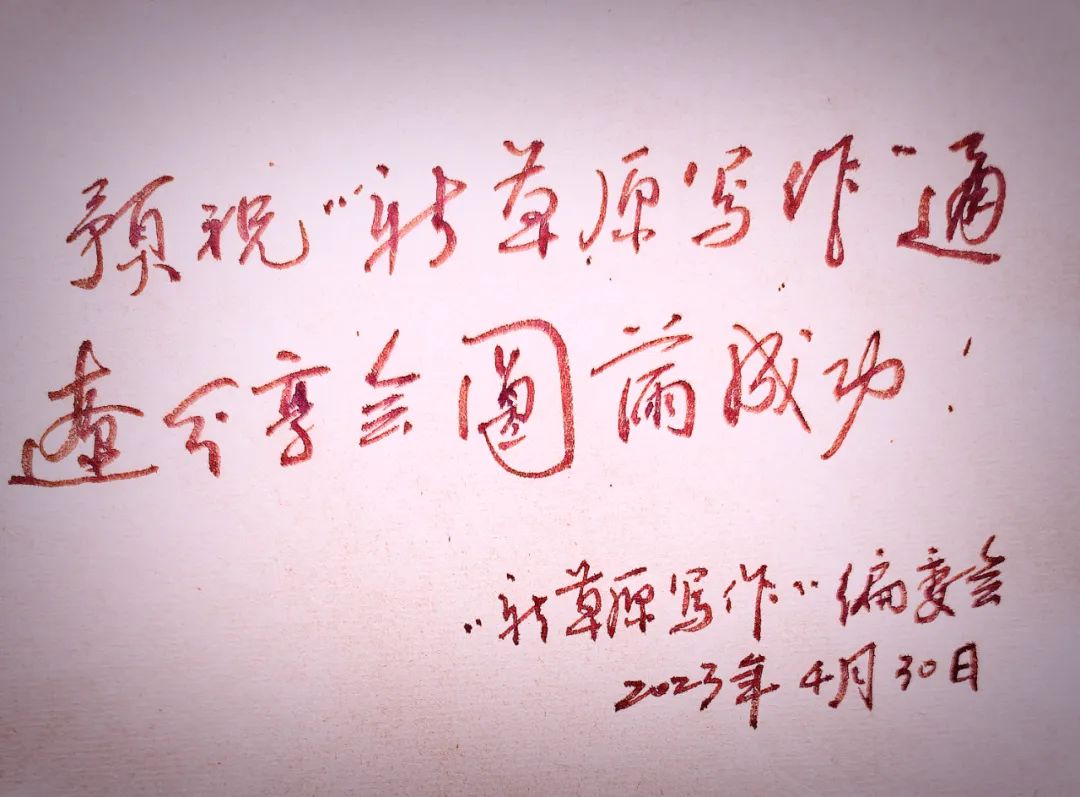 预祝“新草原写作”通
遼分享会圆满成功！
“新草原写作”编委会
2023年4月30日